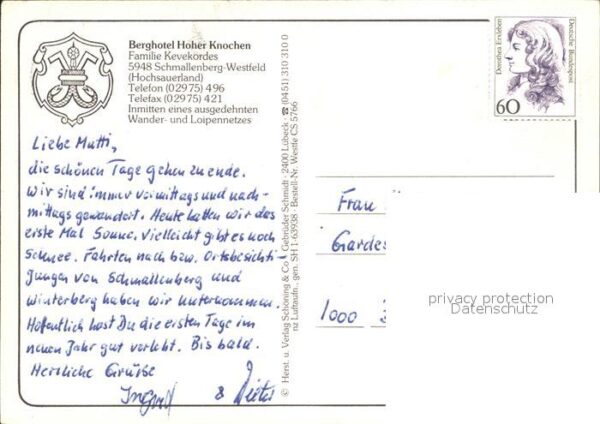 Berghotel Hoher Knochen
Familie Kevekordes
5948 Schmallenberg-Westfeld
(Hochsauerland)
Telefon (02975) 496
Telefax (02975) 421
Inmitten eines ausgedehnten
Wander- und Loipennetzes
Liebe Mutti,
die schönen Tage gehen zu ende.
Wir sind immer vormittags und nach-
mittags gewandert. Heute hatten wir das
erste Mal Sonne. Vielleicht gibt es noch
Schnee. Fahrten nach bzw. Ortsbesichti-
gungen von Schmallenberg und
Winterberg haben wir unternommen.
Hoffentlich hast Du die ersten Tage im
neuen Jahr gut verlebt. Bis bald.
Herzliche Grüße
Ingrid & Dieter
© Herst. u. Verlag Schöning & Co + Gebrüder Schmidt · 2400 Lübeck · ☎ (0451) 310 310 0
nz Luftaufn., gen. SH 1-63938 · Bestell-Nr. Westfe CS 5766
Dorothea Erxleben
Deutsche Bundespost
60
Frau
Gardes
1000
privacy protection
Datenschutz